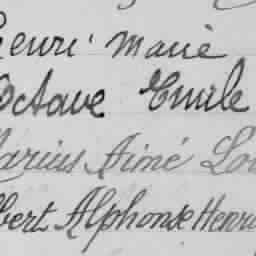 Henri Marie
Octave Emile
Marius Aimé Lou
bert Alphonse Henri